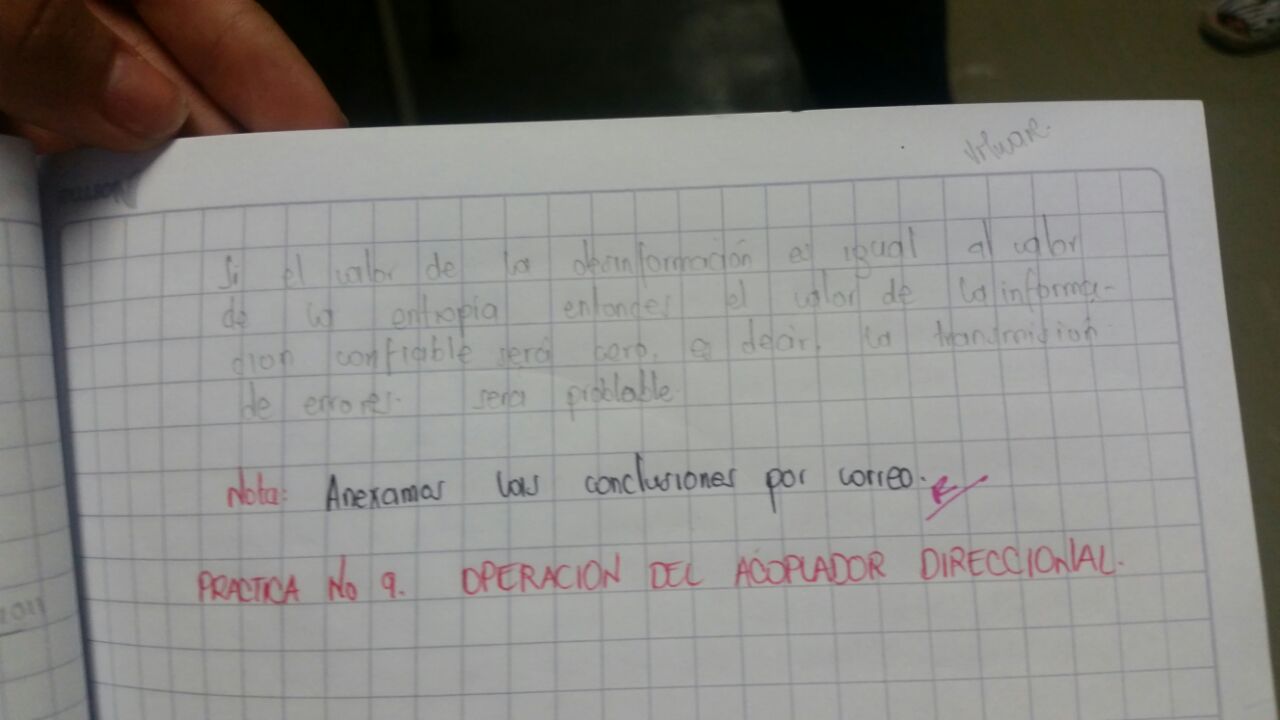 Si el valor de la desinformación es igual al valor
de la entropía entonces el valor de la informa-
cion confiable será cero, es decir, la transmisión
de errores. sera problable.
Nota: Anexamos las conclusiones por correo.
PRACTICA No 9. OPERACION DEL ACOPLADOR DIRECCIONAL.